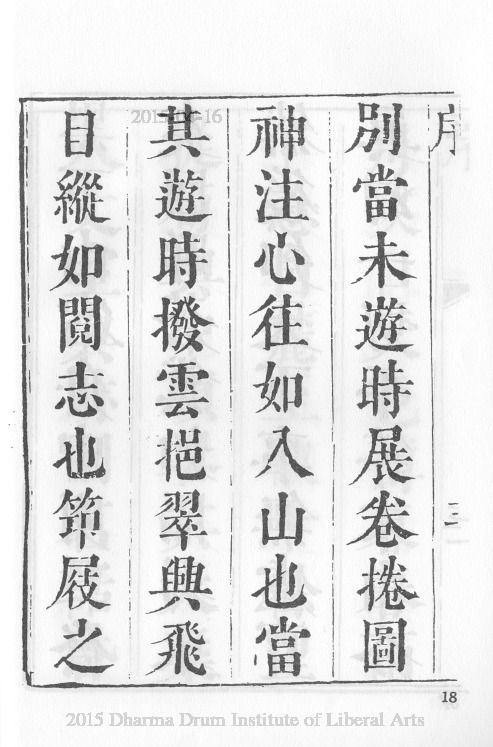 序
三
別當未遊時展卷捲圖
神注心往如入山也當
其遊時撥雲挹翠興飛
目縱如閱志也笻屐之
18
2015 Dharma Drum Institute of Liberal Arts